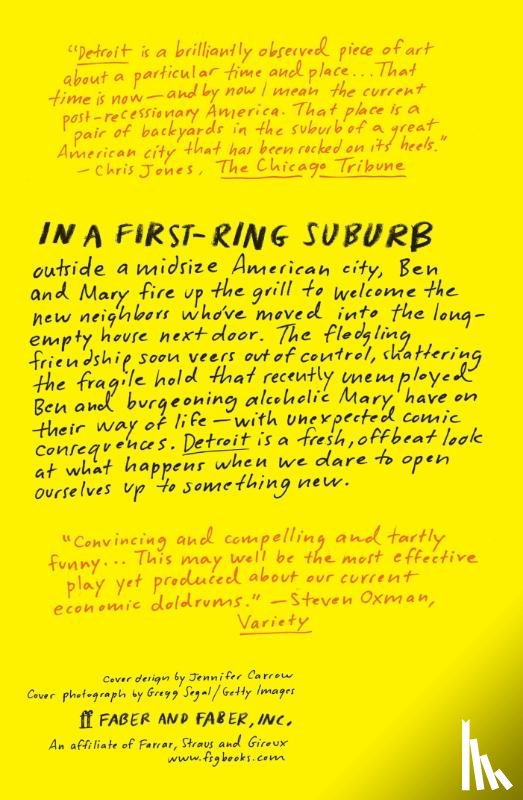 "Detroit is a brilliantly observed piece of art
about a particular time and place...That
time is now—and by now I mean the current
post-recessionary America. That place is a
pair of backyards in the suburb of a great
American city that has been rocked on its heels."
—Chris Jones, The Chicago Tribune
IN A FIRST-RING SUBURB
outside a midsize American city, Ben
and Mary fire up the grill to welcome the
new neighbors who've moved into the long-
empty house next door. The fledgling
friendship soon veers out of control, shattering
the fragile hold that recently unemployed
Ben and burgeoning alcoholic Mary have on
their way of life—with unexpected comic
consequences. Detroit is a fresh, offbeat look
at what happens when we dare to open
ourselves up to something new.
"Convincing and compelling and tartly
funny... This may well be the most effective
play yet produced about our current
economic doldrums." —Steven Oxman,
Variety
Cover design by Jennifer Carrow
Cover photograph by Gregg Segal/Getty Images
ff FABER AND FABER, INC.
An affiliate of Farrar, Straus and Giroux
www.fsgbooks.com